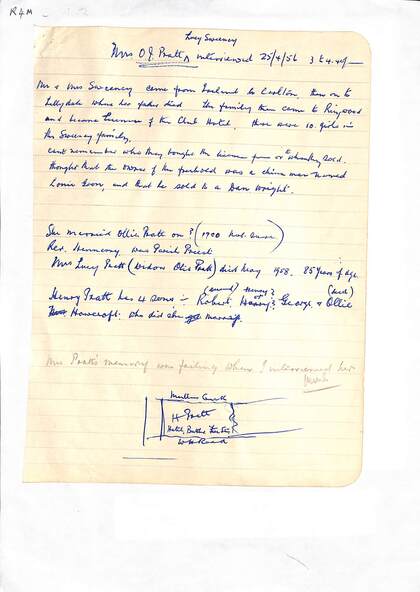 R4M
Lucy Sweeney
Mrs O J Pratt ^ interviewed 25/4/56 3 to 4.40
Mr & Mrs Sweeney came from Ireland to Carlton, then on to
Lillydale where her father died The family then came to Ringwood
and became licensee of the Club Hotel. There were 10 girls in
the Sweeney family.
Can't remember who they bought the license from or to whom they sold.
thought that the owner of the freehold was a china man named
Louie Goon, and that he sold to a Dan Wright.
She married Ollie Pratt on ? (1900
Rev. Hennessy was Parish Priest
Mrs Lucy Pratt (Widow Ollie Pratt) died May 1958. 85 years of age.
Henry Pratt has 4 sons :- Robert, Harry?, George, & Ollie
Howcroft. who did she marry
Mrs Pratt's memory was failing when I interviewed her
H Pratt
Hotel, Butcher
Wh Road